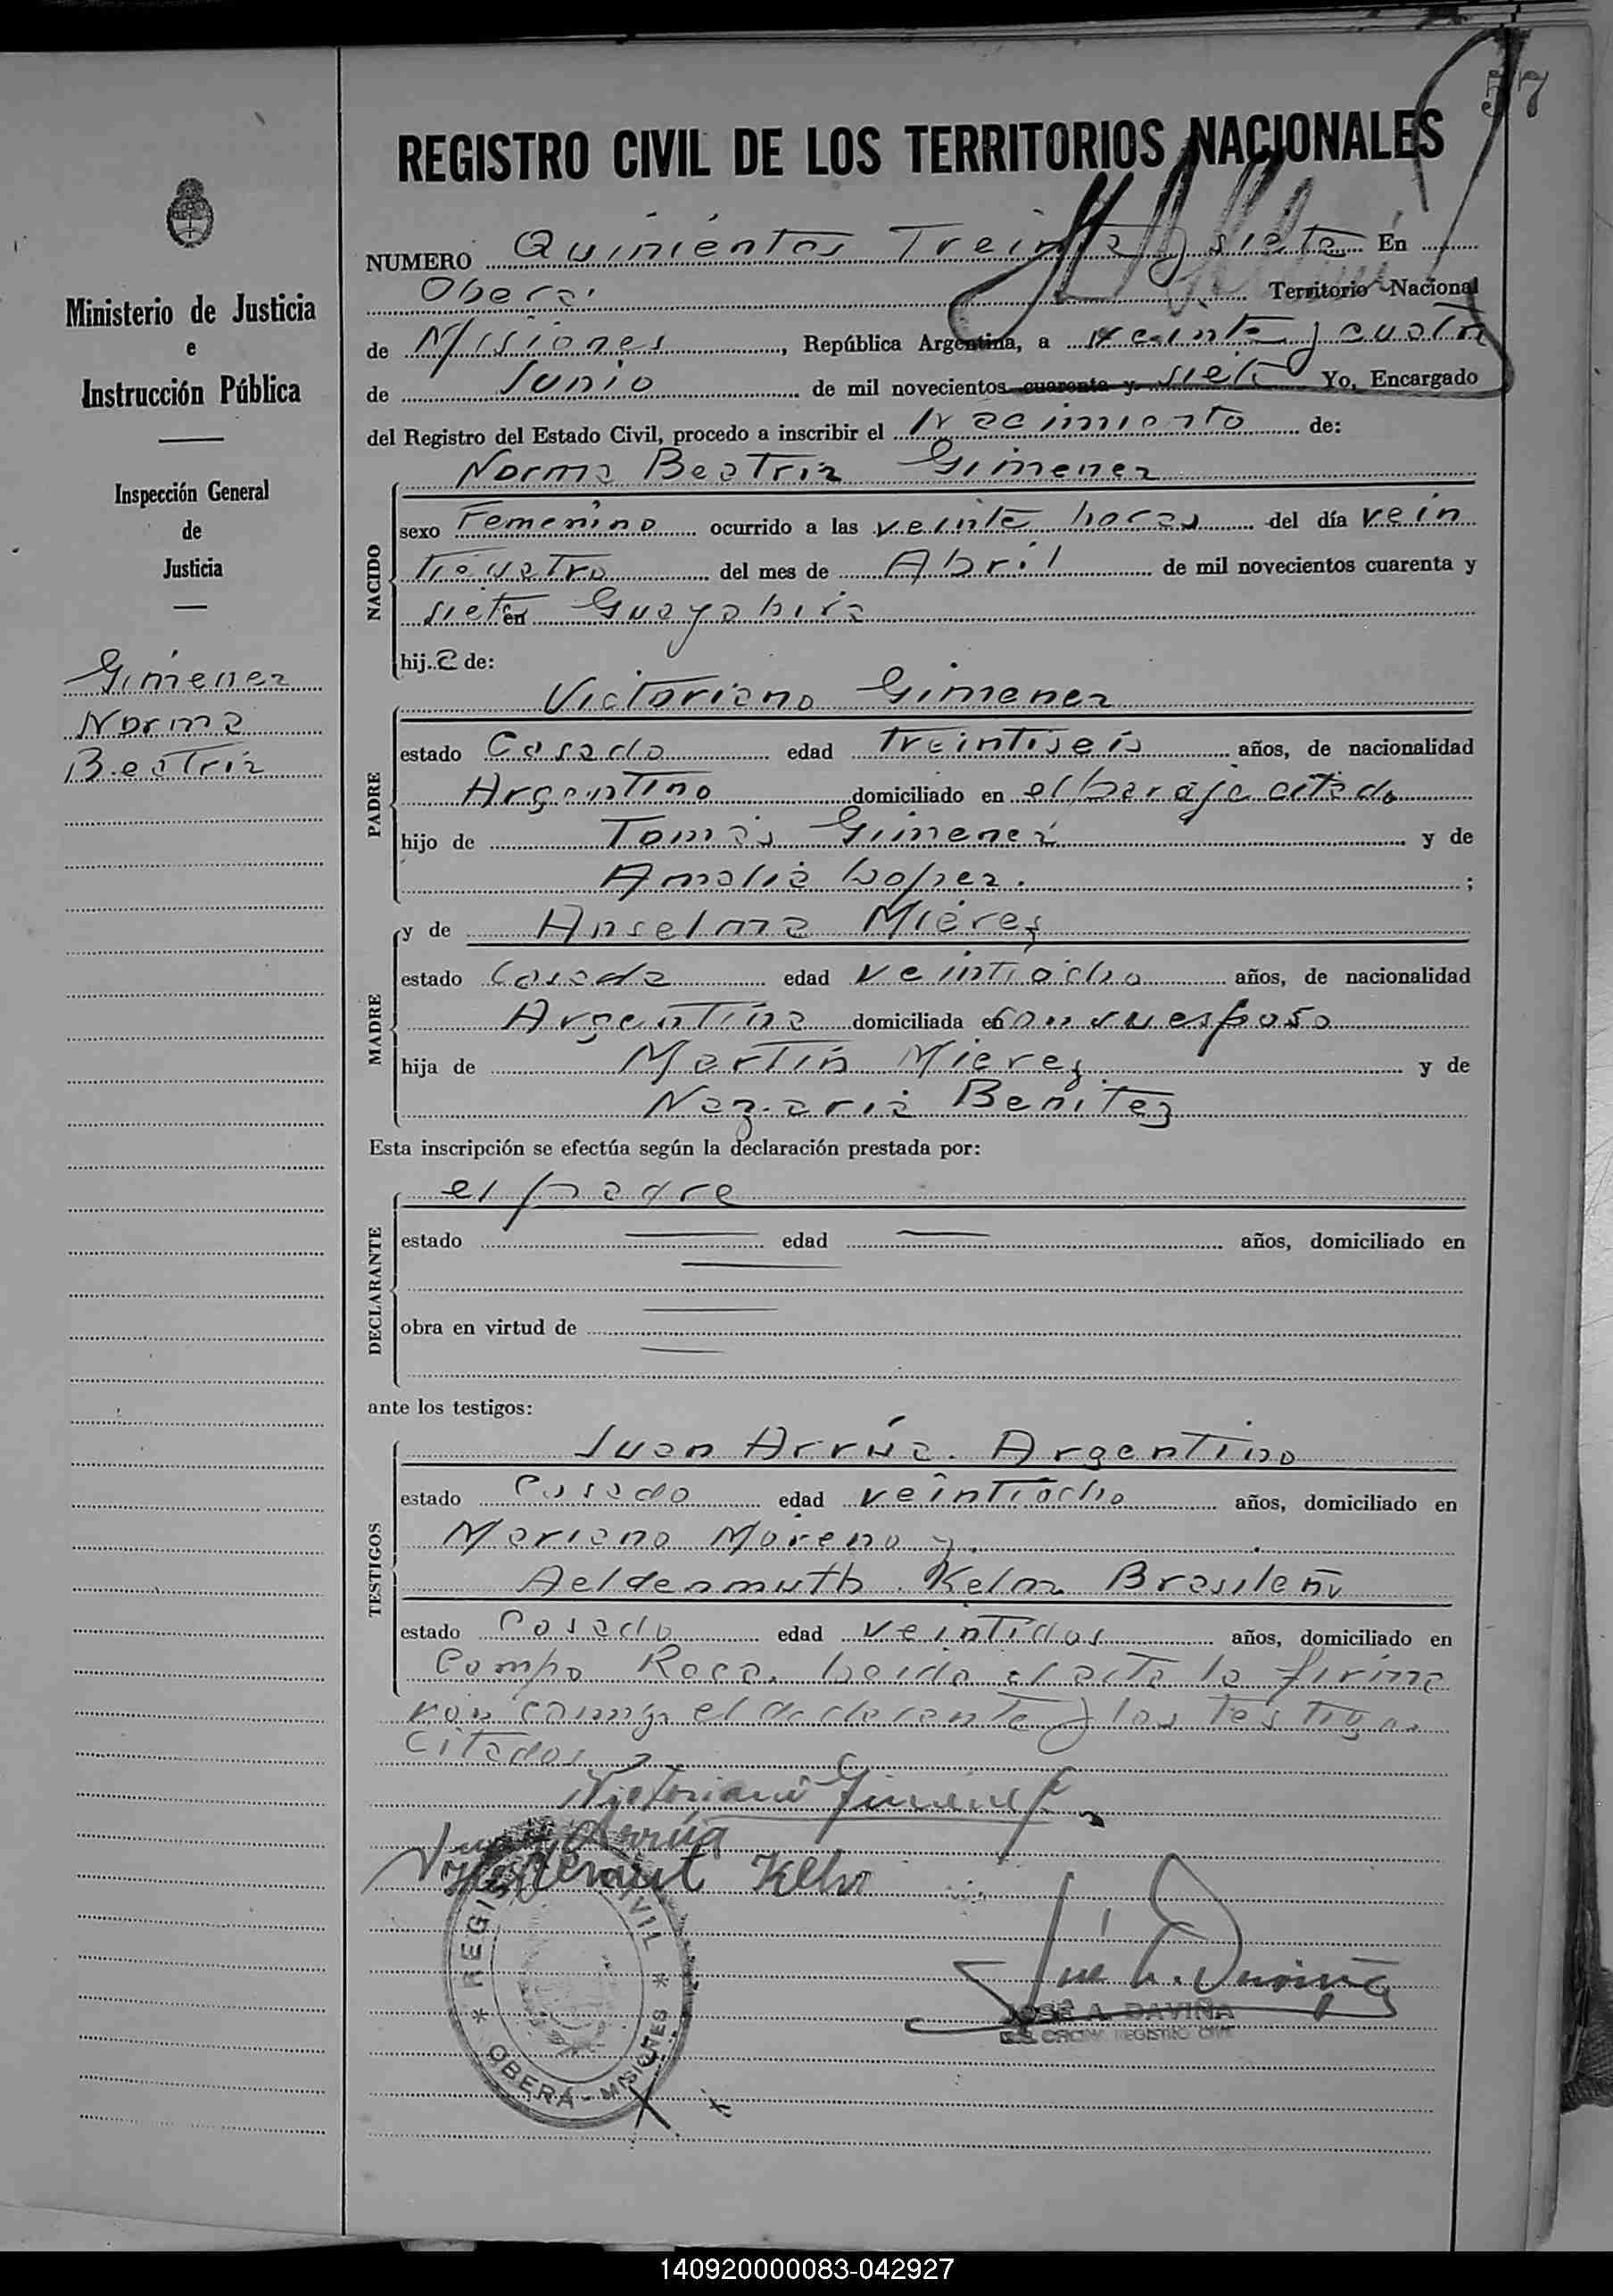 57
REGISTRO CIVIL DE LOS TERRITORIOS NACIONALES
NUMERO Quinientos Treinta y siete En
Oberá Territorio Nacional
de Misiones, República Argentina, a veinte y cuatro
de Junio de mil novecientos cuarenta y siete Yo, Encargado
del Registro del Estado Civil, procedo a inscribir el Nacimiento de:
Norma Beatriz Gimenez
NACIDO
sexo Femenino ocurrido a las veinte horas del día vein
ticuatro del mes de Abril de mil novecientos cuarenta y
siete en Guayabira
hija de:
Victoriano Gimenez
PADRE
estado Casado edad treintiseis años, de nacionalidad
Argentino domiciliado en el paraje citado
hijo de Tomás Gimenez y de
Amalia Lopez. ;
MADRE
y de Anselma Mierez
estado Casada edad veintiocho años, de nacionalidad
Argentina domiciliada en con su esposo
hija de Martín Mierez y de
Nazaria Benitez
Esta inscripción se efectúa según la declaración prestada por:
el padre
DECLARANTE
estado edad años, domiciliado en
obra en virtud de
ante los testigos:
Juan Arrúa. Argentino
TESTIGOS
estado Casado edad veintiocho años, domiciliado en
Mariano Moreno y
Aeldenmuth Kelm Brasileño
estado Casado edad veintidos años, domiciliado en
Campo Roca. Leida el acta la firma
ron conmigo el declarante y los testigos
citados
Victoriano Gimenez
Juan Arrúa
JOSÉ A. DAVIÑA
ENC. OFICINA REGISTRO CIVIL
* REGISTRO CIVIL * OBERÁ - MISIONES
Ministerio de Justicia
e
Instrucción Pública
Inspección General
de
Justicia
Gimenez
Norma
Beatriz
140920000083-042927